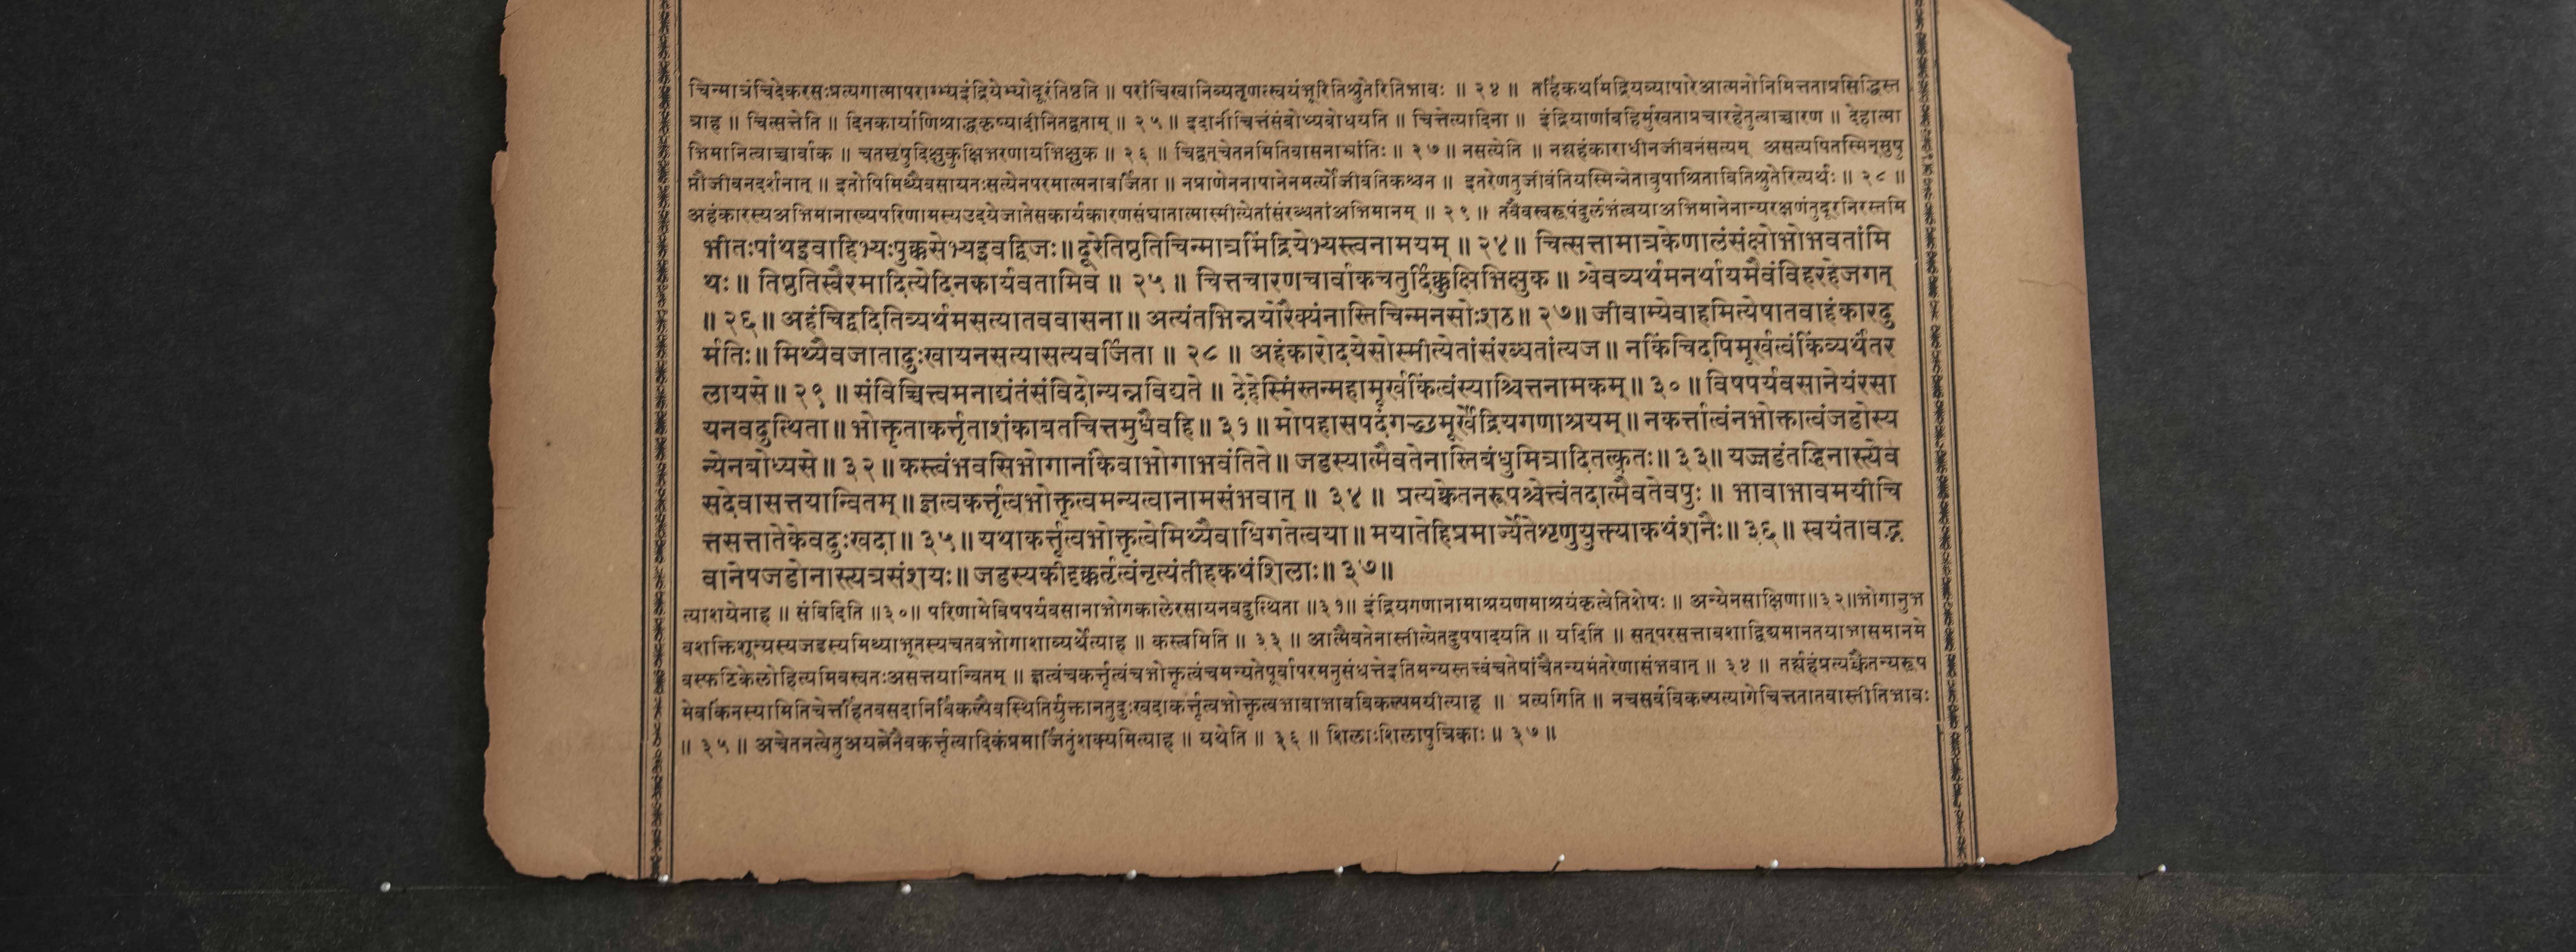 चिन्मात्रंचिदेकरसःप्रत्यगात्मापराग्भ्यइंद्रियेभ्योदूरंतिष्ठति ॥ परांचिखानिव्यतृणत्स्वयंभूरितिश्रुतेरितिभावः ॥ २४ ॥ तर्हिकथमिंद्रियव्यापारेआत्मनोनिमित्तताप्रसिद्धिस्त
त्राह ॥ चित्सत्तेति ॥ दिनकार्याणिश्राद्धकृष्यादीनितद्वताम् ॥ २५ ॥ इदानींचित्तंसंबोध्यबोधयति ॥ चित्तेत्यादिना ॥ इंद्रियाणांबहिर्मुखताप्रचारहेतुत्वाच्चारण ॥ देहात्मा
भिमानित्वाच्चार्वाक ॥ चतसृषुदिक्षुकुक्षिभरणायभिक्षुक ॥ २६ ॥ चिद्वत्चेतनमितिवासनाभ्रांतिः ॥ २७ ॥ नसत्येति ॥ नह्यहंकाराधीनजीवनंसत्यम् असत्यपितस्मिन्सुषु
प्तौजीवनदर्शनात् ॥ इतोपिमिथ्यैवसायतःसत्येनपरमात्मनावर्जिता ॥ नप्राणेननापानेनमर्त्योजीवतिकश्चन ॥ इतरेणतुजीवंतियस्मिन्नेतावुपाश्रितावितिश्रुतेरित्यर्थः ॥ २८ ॥
अहंकारस्यअभिमानाख्यपरिणामस्यउदयेजातेसकार्यकारणसंघातात्मास्मीत्येतांसंरब्धतांअभिमानम् ॥ २९ ॥ तवैवस्वरूपंदुर्लभंत्वयाअभिमानेनान्यरक्षणंतुदूरनिरस्तमि
भीतःपांथइवाहिभ्यःपुक्कसेभ्यइवद्विजः ॥ दूरेतिष्ठतिचिन्मात्रमिंद्रियेभ्यस्त्वनामयम् ॥ २४ ॥ चित्सत्तामात्रकेणालंसंक्षोभोभवतांमि
थः ॥ तिष्ठतिस्वैरमादित्येदिनकार्यवतामिव ॥ २५ ॥ चित्तचारणचार्वाकचतुर्दिक्कुक्षिभिक्षुक ॥ श्वेवव्यर्थमनर्थायमैवंविहरहेजगत्
॥ २६ ॥ अहंचिद्वदितिव्यर्थमसत्यातववासना ॥ अत्यंतभिन्नयोरैक्यंनास्तिचिन्मनसोःशठ ॥ २७ ॥ जीवाम्येवाहमित्येषातवाहंकारदु
र्मतिः ॥ मिथ्यैवजातादुःखायनसत्यासत्यवर्जिता ॥ २८ ॥ अहंकारोदयेसोस्मीत्येतांसंरब्धतांत्यज ॥ नकिंचिदपिमूर्खत्वंकिंव्यर्थंतर
लायसे ॥ २९ ॥ संविच्चित्त्वमनाद्यंतंसंविदोन्यन्नविद्यते ॥ देहेस्मिंस्तन्महामूर्खकिंत्वंस्याश्चित्तनामकम् ॥ ३० ॥ विषपर्यवसानेयंरसा
यनवदुत्थिता ॥ भोक्तृताकर्त्तृताशंकाबतचित्तमुधैवहि ॥ ३१ ॥ मोपहासपदंगच्छमूर्खेंद्रियगणाश्रयम् ॥ नकर्त्तात्वंनभोक्तात्वंजडोस्य
न्येनबोध्यसे ॥ ३२ ॥ कस्त्वंभवसिभोगानांकेवाभोगाभवंतिते ॥ जडस्यात्मैवतेनास्तिबंधुमित्रादितत्कुतः ॥ ३३ ॥ यज्जडंतद्धिनास्त्येव
सदेवासत्तयान्वितम् ॥ ज्ञत्वकर्त्तृत्वभोक्तृत्वमन्यत्वानामसंभवात् ॥ ३४ ॥ प्रत्यक्चेतनरूपश्चेत्त्वंतदात्मैवतेवपुः ॥ भावाभावमयीचि
त्तसत्तातेकेवदुःखदा ॥ ३५ ॥ यथाकर्त्तृत्वभोक्तृत्वेमिथ्यैवाधिगतेत्वया ॥ मयातेहिप्रमार्ज्येतेशृणुयुक्त्याकथंशनैः ॥ ३६ ॥ स्वयंतावद्भ
वानेषजडोनास्त्यत्रसंशयः ॥ जडस्यकीदृक्कर्तृत्वंनृत्यंतीहकथंशिलाः ॥ ३७ ॥
त्याशयेनाह ॥ संविदिति ॥३०॥ परिणामेविषपर्यवसानाभोगकालेरसायनवदुत्थिता ॥३१॥ इंद्रियगणानामाश्रयणमाश्रयंकृत्वेतिशेषः ॥ अन्येनसाक्षिणा॥३२॥भोगानुभ
वशक्तिशून्यस्यजडस्यमिथ्याभूतस्यचतवभोगाशाव्यर्थेत्याह ॥ कस्त्वमिति ॥ ३३ ॥ आत्मैवतेनास्तीत्येतदुपपादयति ॥ यदिति ॥ सत्परसत्तावशाद्विद्यमानतयाभासमानमे
वस्फटिकेलोहित्यमिवस्वतःअसत्तयान्वितम् ॥ ज्ञत्वंचकर्त्तृत्वंचभोक्तृत्वंचमन्यतेपूर्वापरमनुसंधत्तेइतिमन्यस्तत्त्वंचतेषांचैतन्यमंतरेणासंभवात् ॥ ३४ ॥ तर्ह्यहंप्रत्यक्चैतन्यरूप
मेवकिंनस्यामितिचेत्तर्हितवसदानिर्विकल्पैवस्थितिर्युक्तानतुदुःखदाकर्त्तृत्वभोक्तृत्वभावाभावविकल्पमयीत्याह ॥ प्रत्यगिति ॥ नचसर्वविकल्पत्यागेचित्ततातवास्तीतिभावः
॥ ३५ ॥ अचेतनत्वेतुअयत्नेनैवकर्त्तृत्वादिकंप्रमार्जितुंशक्यमित्याह ॥ यथेति ॥ ३६ ॥ शिलाःशिलापुत्रिकाः ॥ ३७ ॥